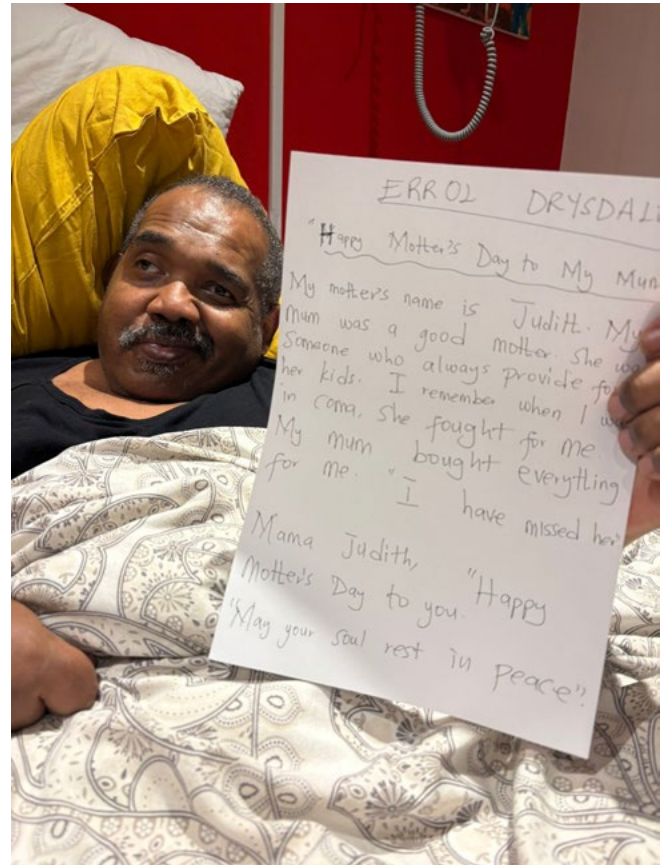 ERROL DRYSDAL
"Happy Motter's Day to My Mum
My motter's name is Juditt. My
Mum was a good motter. She
Someone who always provide for
her kids. I remember when I
in coma, she fought for me.
My mum bought everything
for me. "I have missed her"
Mama Judith, "Happy
Motter's Day to you.
"May your soul rest in peace".